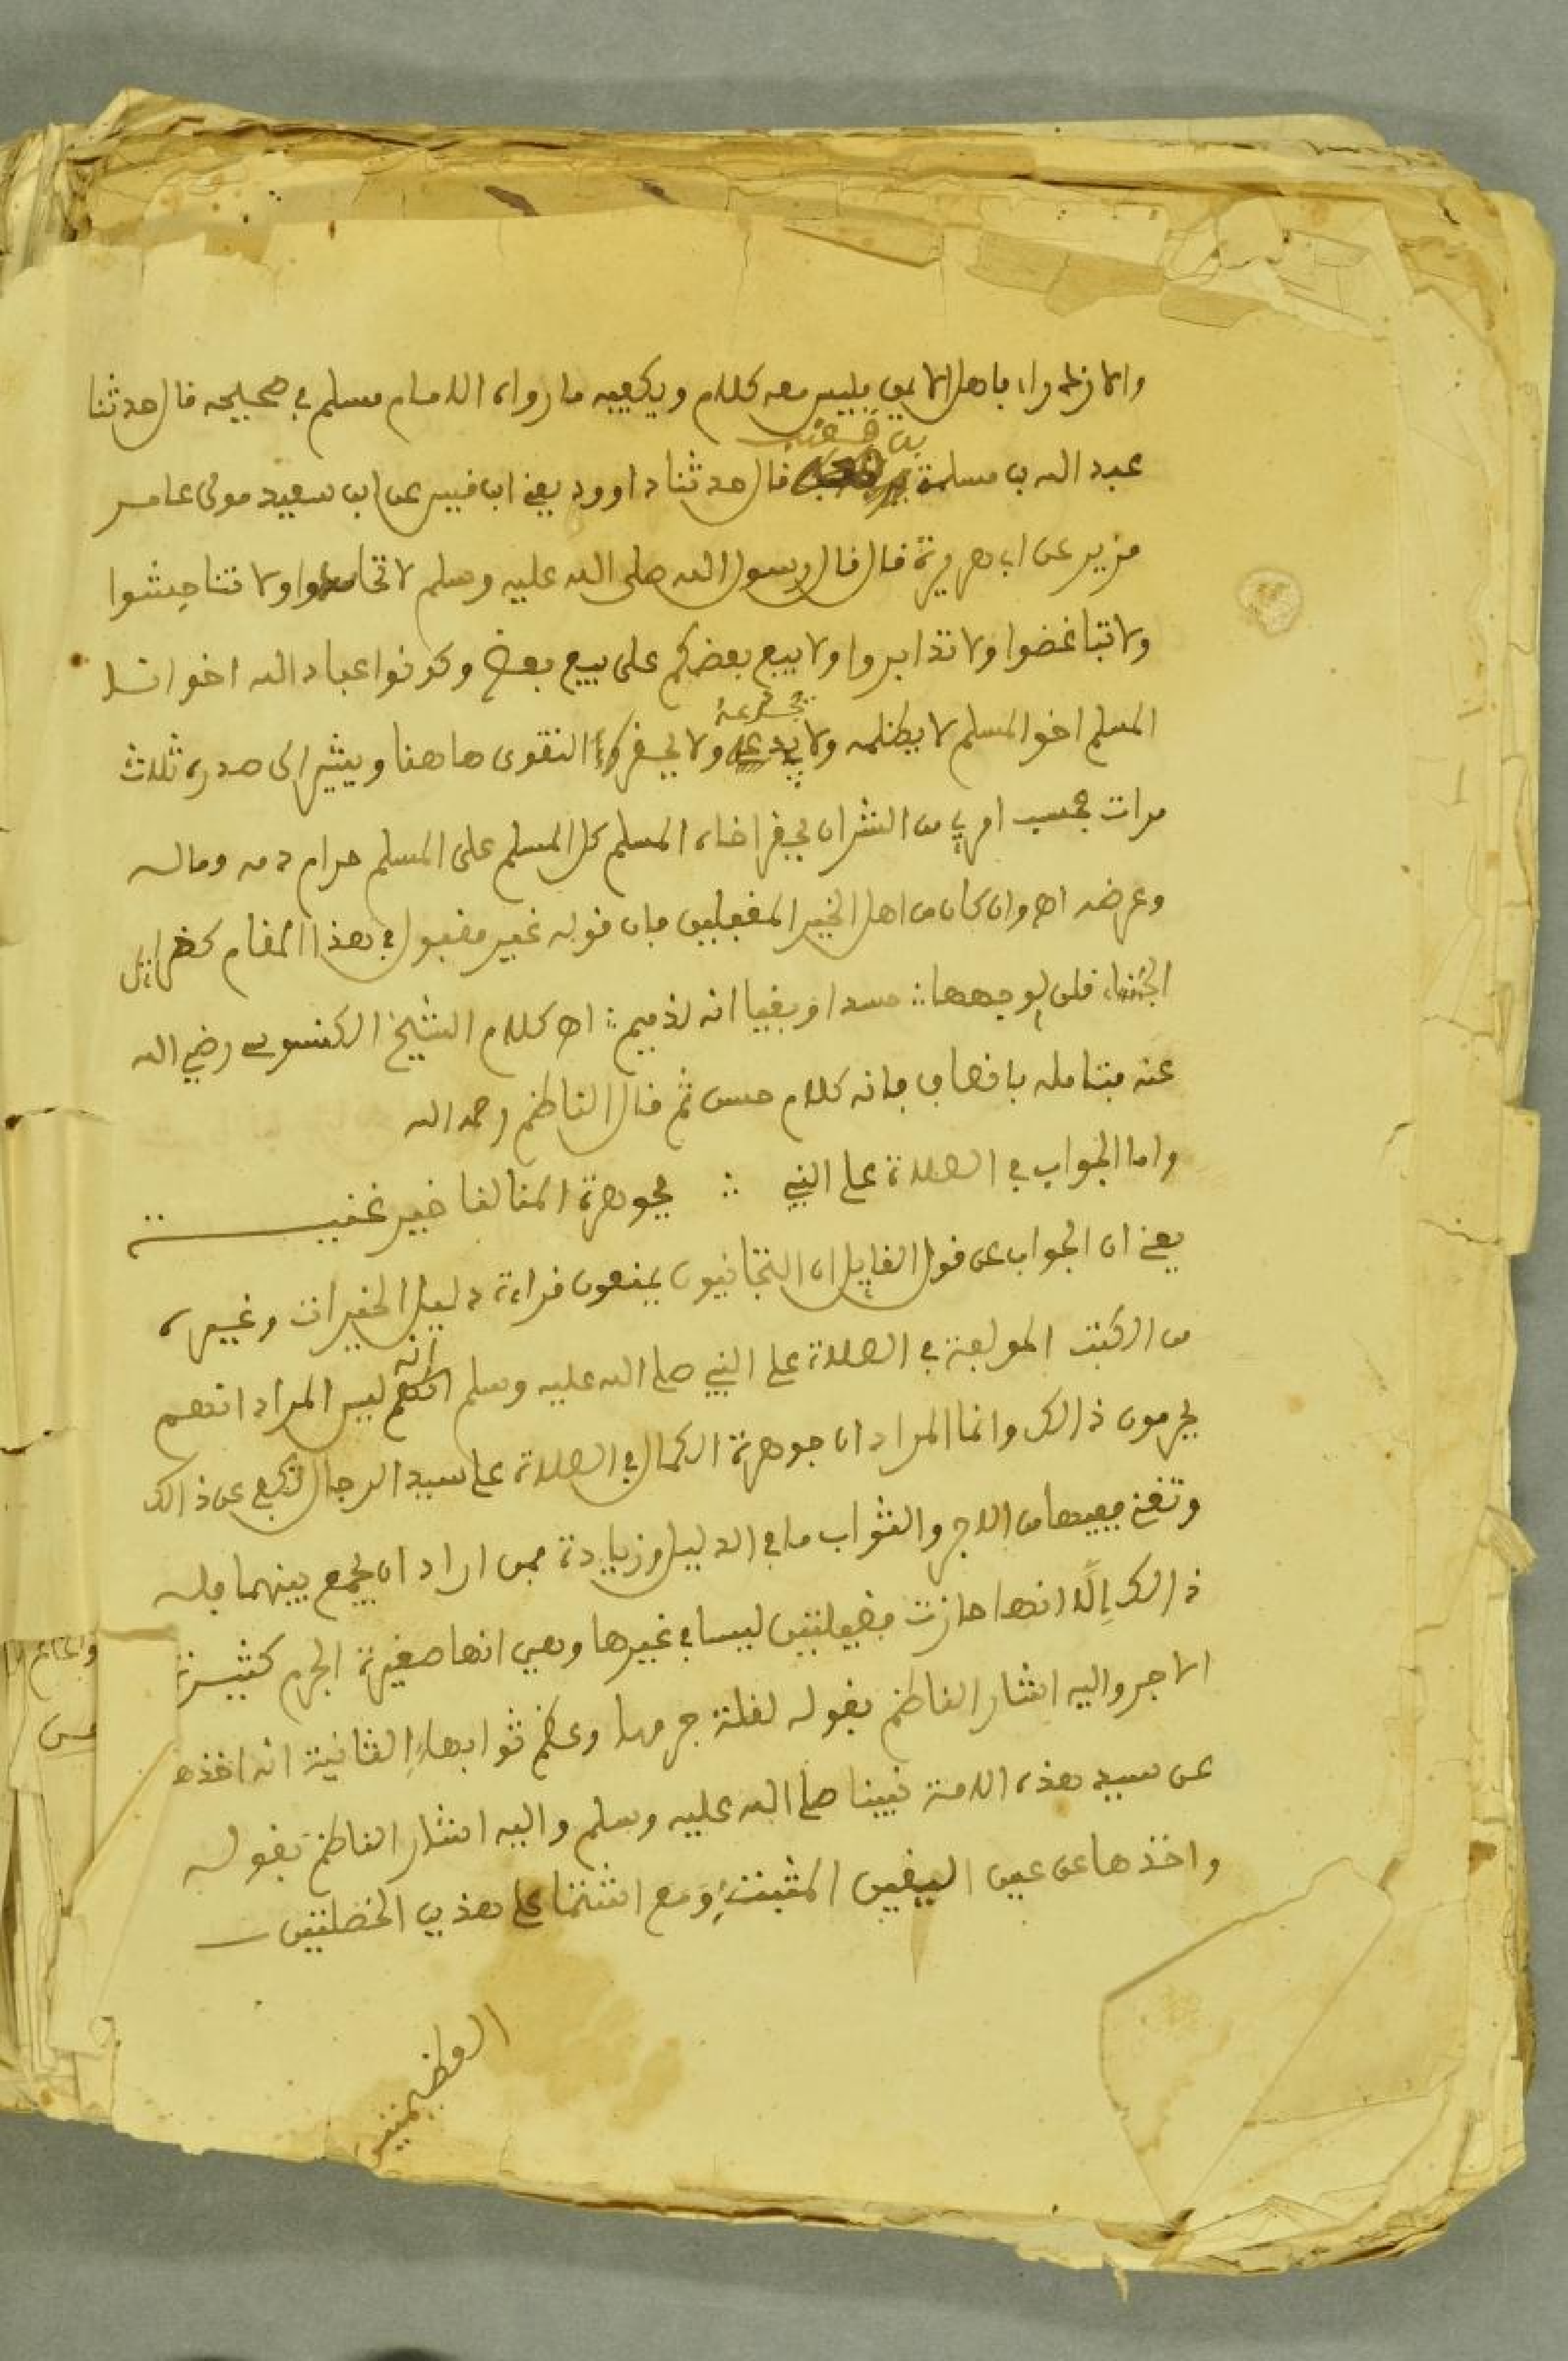 والازدراء باهل الايمن فليس معه كلام ويكفيه ما رواه الامام مسلم في صحيحه قال حدثنا
عبد الله بن مسلمة بن قعنب قال حدثنا داوود يعني ابن قيس عن ابي سعيد مولى عامر
مزير عن ابي هريرة قال قال رسول الله صلى الله عليه وسلم لا تحاسدوا ولا تناجشوا
ولا تباغضوا ولا تدابروا ولا يبيع بعضكم على بيع بعض وكونوا عباد الله اخوانا
المسلم اخو المسلم لا يظلمه ولا ولا يحقره التقوى هاهنا ويشير الى صدره ثلاث
مرات بحسب امرئ من الشر ان يحقر اخاه المسلم كل المسلم على المسلم حرام دمه وماله
وعرضه اه وان كان من اهل الخير المفبلين فان قوله غير مقبول في هذا المقام كضرائر
الحسناء قلن لوجهها ∴ حسدا وبغيا انه لذميم ∴ اه كلام الشيخ الكنسوسي رضي الله
عنه فتامله بانصاف فانه كلام حسن ثم قال الناظم رحمه الله
واما الجواب في الصلاة على النبي ∴ فجوهرة المنا لفا خير غنية
يعني ان الجواب عن قول القايل ان التجانيون يمنعون قراءة دليل الخيرات وغيره
من الكتب المولفة في الصلاة على النبي صلى الله عليه وسلم انه ليس المراد انهم
يحرمون ذالك وانما المراد ان جوهرة الكمال في الصلاة على سيد الرجال تكفي عن ذالك
وتغني ففيها من الاجر والثواب ما في الدليل وزيادة فمن اراد ان يجمع بينهما فله
ذالك إلا انها حازت فضيلتين ليسا في غيرها وهي انها صغيرة الجرم كثيرة
الاجر واليه اشار الناظم بقوله لقلة جرمها وعظم ثوابها الثانية انه اخذها
عن سيد هذه الامة نبينا صلى الله عليه وسلم واليه اشار الناظم بقوله
واخذها عن عين اليقين المثبت ومع اشتمالها على هذين الخصلتين
العظيمتين